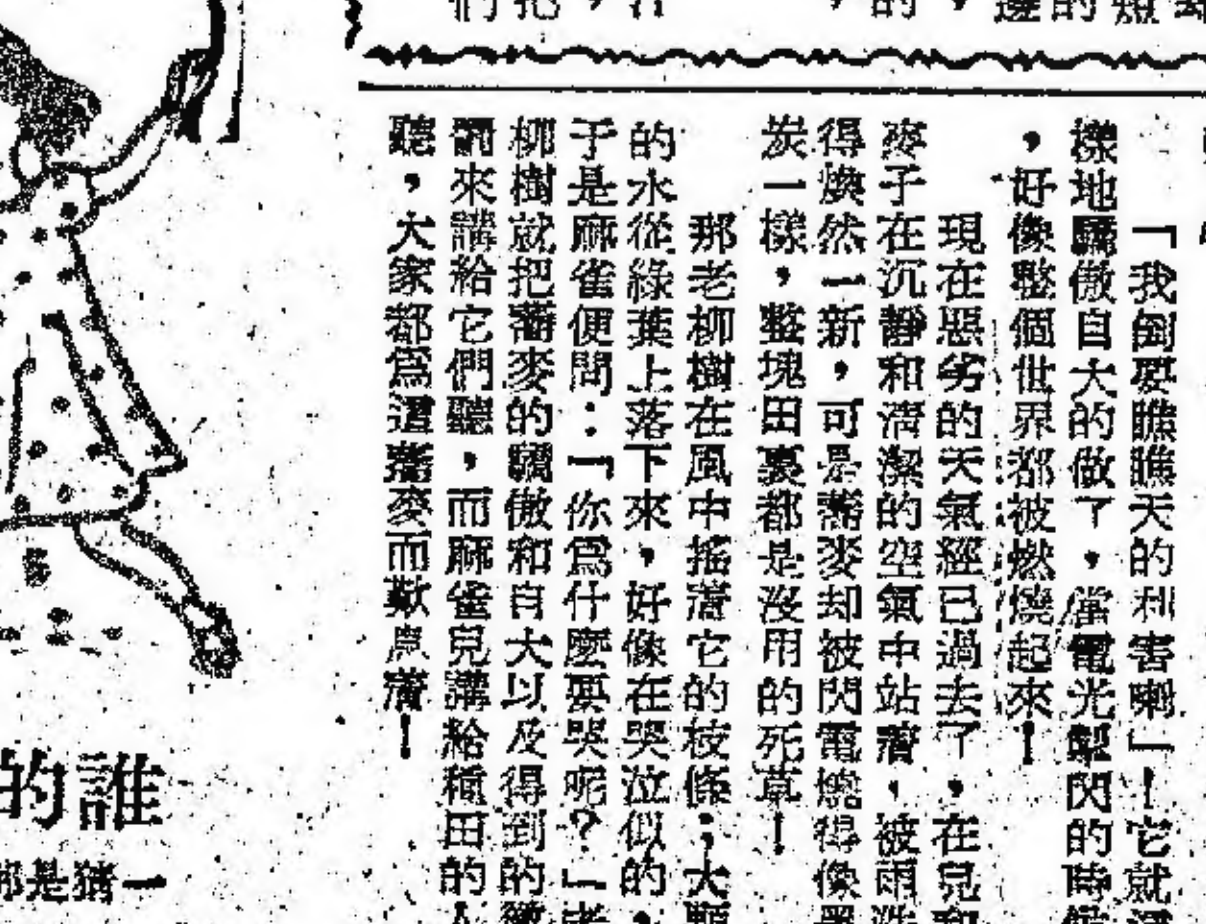 「我倒要瞧瞧天的利害喇」！它就
樣地驕傲自大的做了，當電光掣閃的時
，好像整個世界都被燃燒起來！
現在惡劣的天氣經已過去了，在兒和
麥子在沉靜和清潔的空氣中站着，被雨洗
得煥然一新，可是蕎麥却被閃電燒得像黑
炭一樣，整塊田裏都是沒用的死草！
那老柳樹在風中搖着它的枝條；大顆
的水從綠葉上落下來，好像在哭泣似的，
于是麻雀便問：「你爲什麽要哭呢？」老
柳樹就把蕎麥的驕傲和自大以及得到的懲
罰來講給它們聽，而麻雀兒講給種田的人
聽，大家都爲這蕎麥而歎息着！
誰的
一猜是那